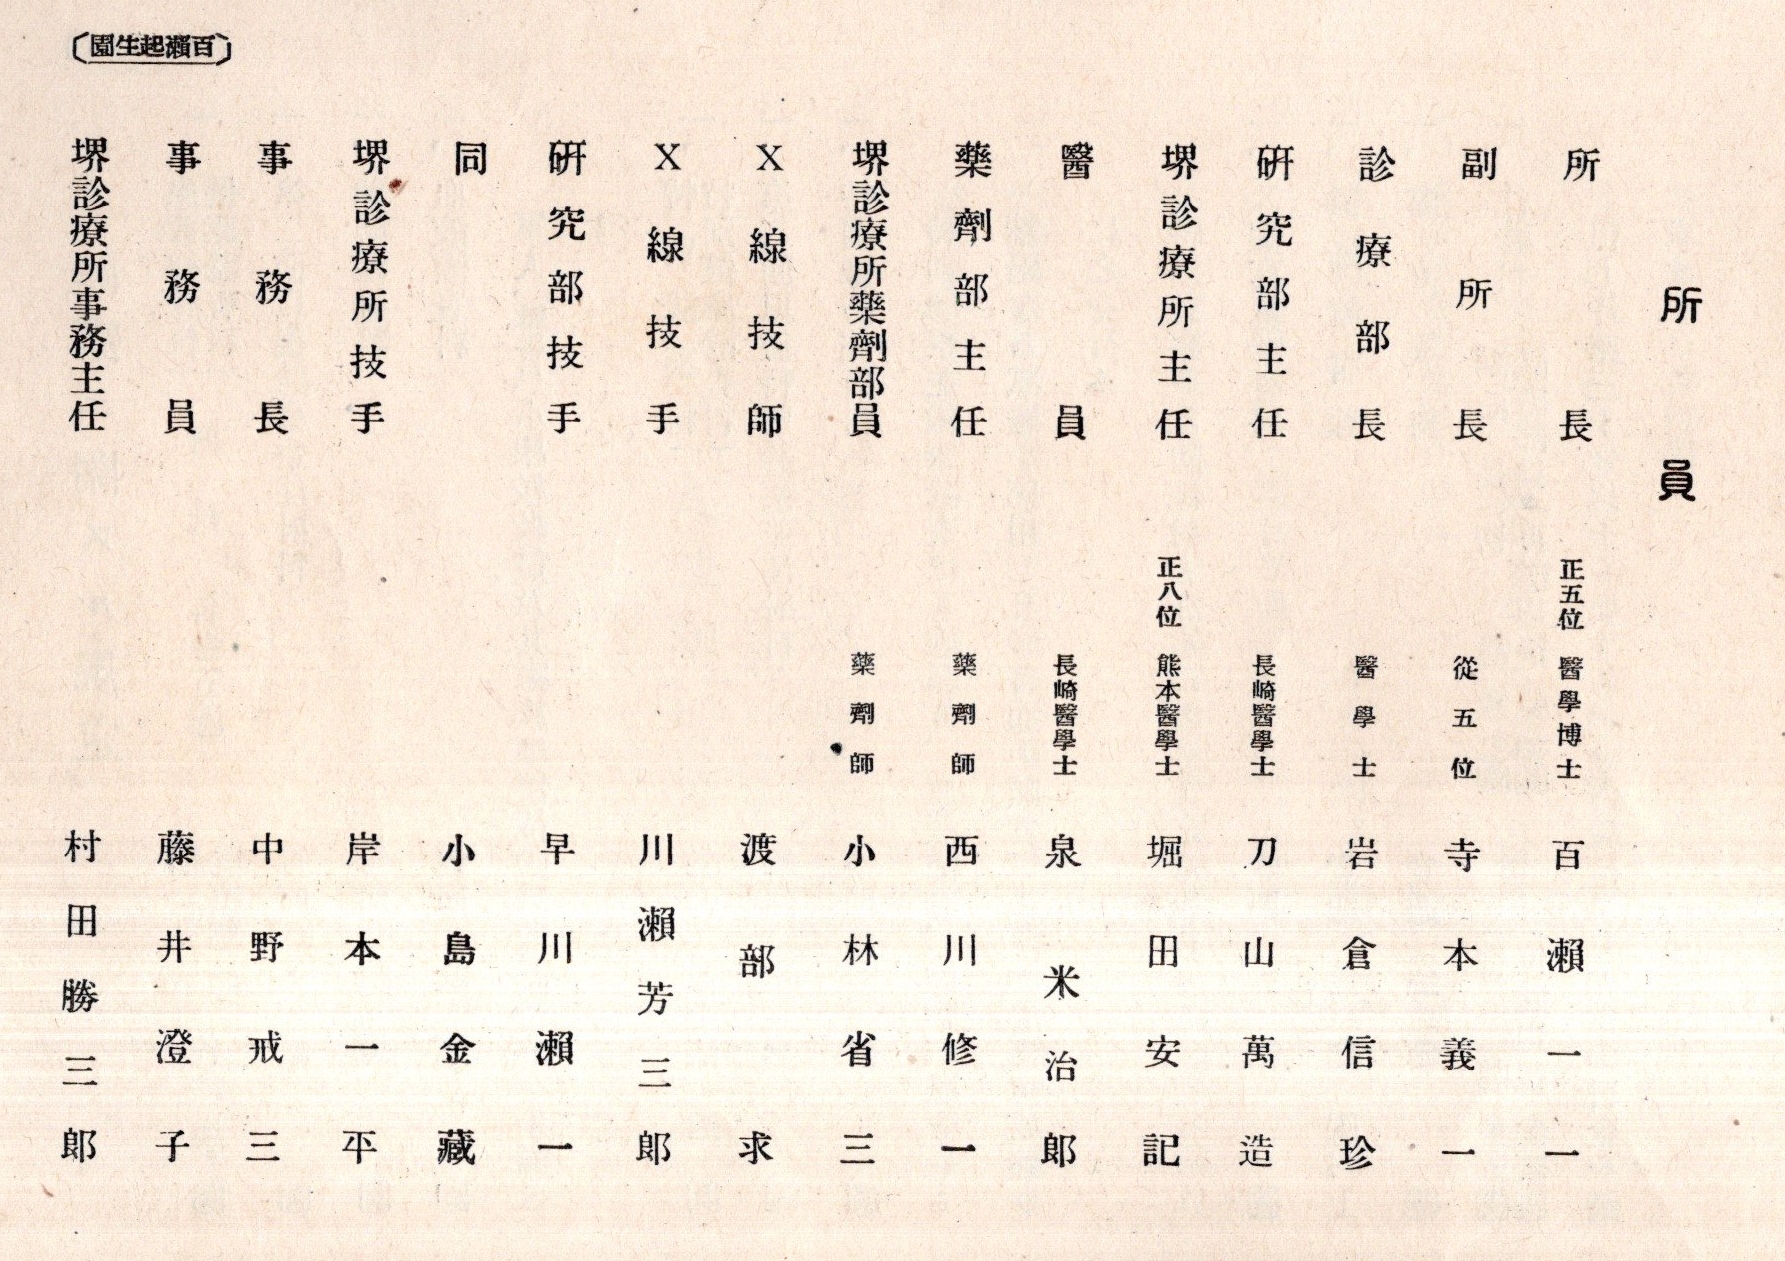 〔百瀨起生園〕
所員
所長 正五位 醫學博士 百瀨一一
副所長 從五位 寺本義一
診療部長 醫學士 岩倉信珍
硏究部主任 長崎醫學士 刀山萬造
堺診療所主任 正八位 熊本醫學士 堀田安記
醫員 長崎醫學士 泉米治郞
藥劑部主任 藥劑師 西川修一
堺診療所藥劑部員 藥劑師 小林省三
X線技師 渡部求
X線技手 川瀨芳三郞
硏究部技手 早川瀨一
同 小島金藏
堺診療所技手 岸本一平
事務長 中野戒三
事務員 藤井澄子
堺診療所事務主任 村田勝三郞